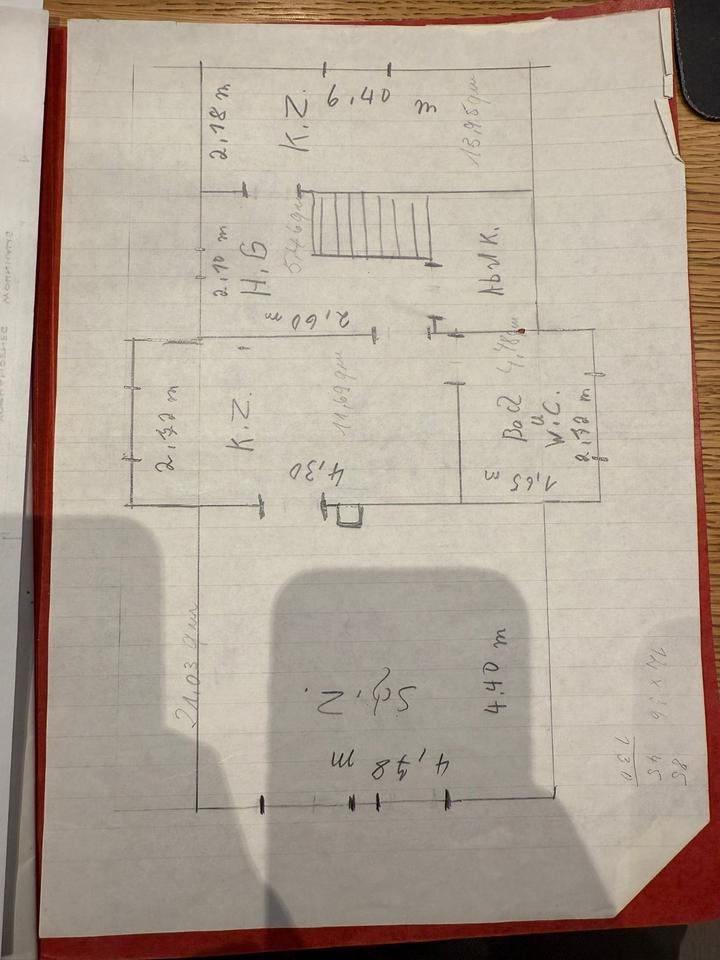 2,18 m
K.Z.
6,40
m
13.95 qm
2,10 m
H.G
5,46 qm
Abst K.
2,60 m
2,72 m
K.Z.
11,69 qm
4,30
Bad
u
W.C.
4,48 qm
2,72 m
1,65
m
21.03 qm
Sch.Z.
4,40 m
4,78 m
85
45
130